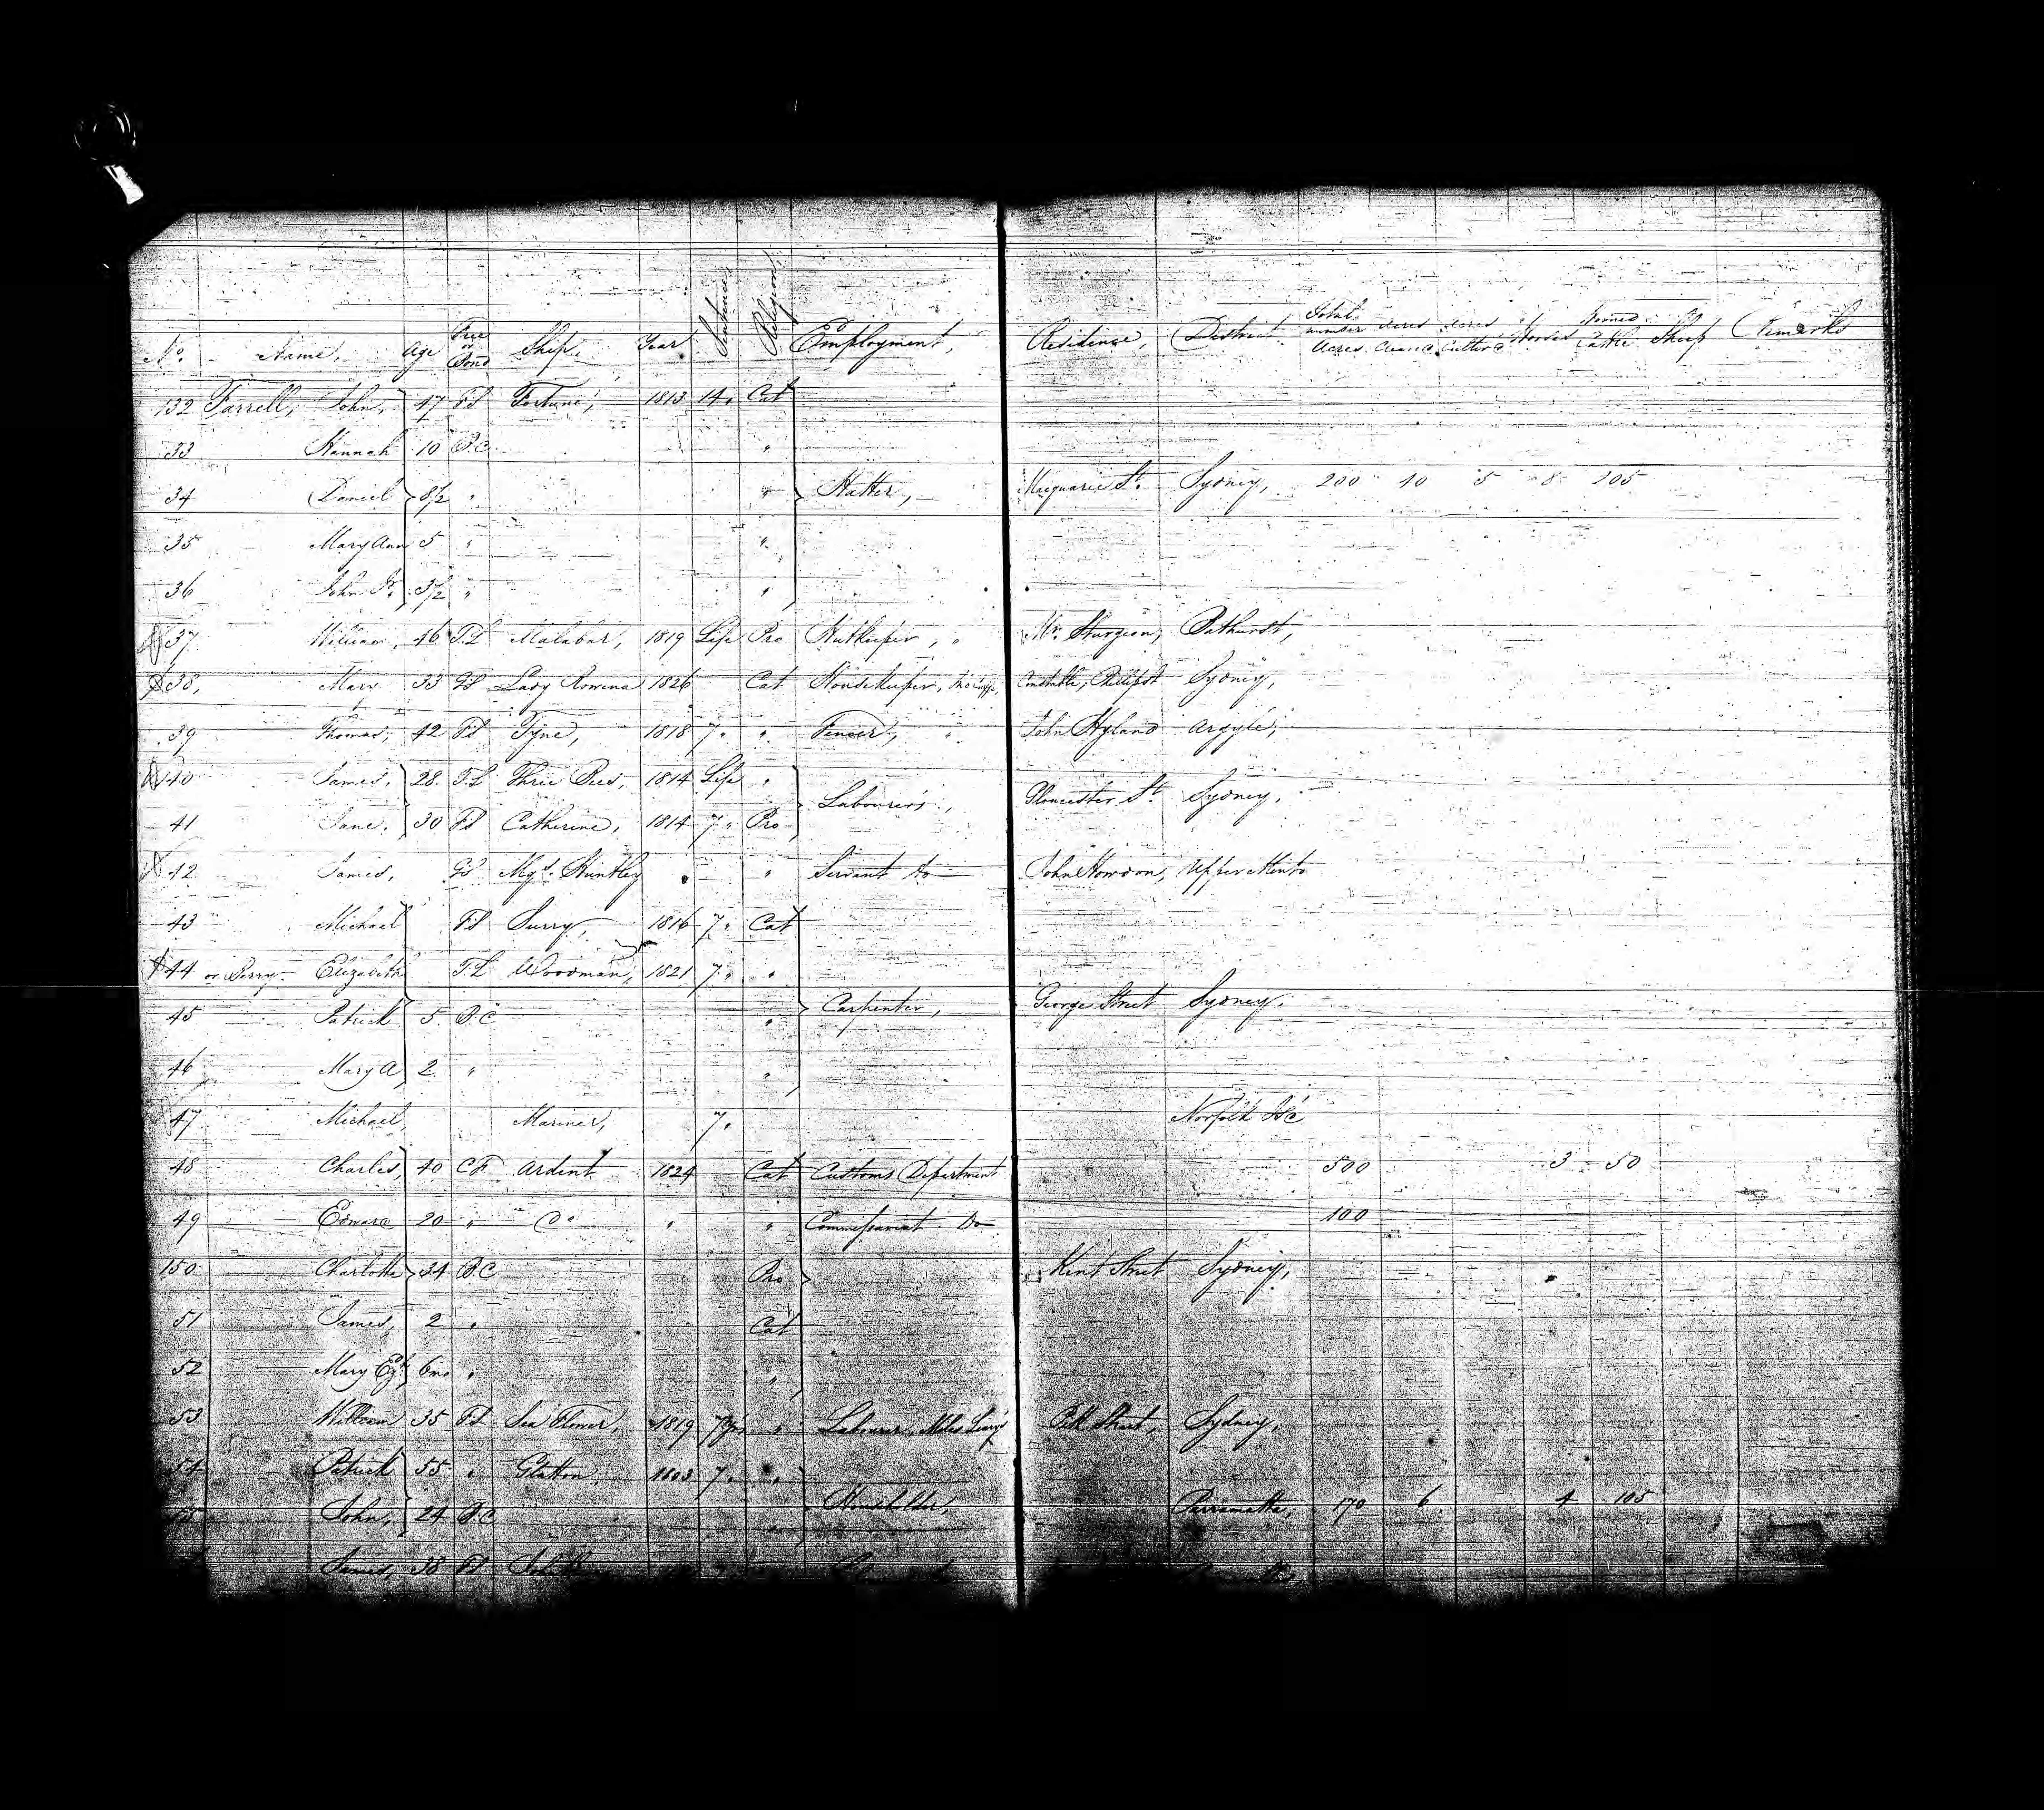 No. Name, Age Free or Bond Ship, Year Sentence Religion, Employment, Residence, District Total number Acres Acres Cleared Acres Culture Horses Horned Cattle Sheep Remarks
132 Farrell, John, 47 FS Fortune, 1813 14 " Cat
33 Hannah 10 B.C. "
34 Daniel 8½ " " Hatter, Macquarie St. Sydney, 200 10 5 8 105
35 Mary Ann 5 " "
36 John Jr. 3½ " "
37 William, 46 T.L Malabar, 1819 Life Pro Hutkeeper, " Mr. Sturgeon, Bathurst,
38, Mary 33 GS Lady Rowena 1826 Cat Housekeeper, Constable, Phillip St Sydney,
39 Thomas, 42 FS Tyne, 1818 7 " " Fencer, " John Hyland Argyle,
40 James, 28 T.L Three Bees, 1814 Life "
Labourers, Gloucester St. Sydney,
41 Jane, 30 FS Catherine, 1814 7 " Pro
42 James, GS Mqs. Huntley " " Servant to John Howdon, Upper Minto
43 Michael FS Surry, 1816 7 " Cat
44 or Berry Elizabeth T.L Woodman, 1821 7 " "
Carpenter, George Street Sydney,
45 Patrick 5 B.C "
46 Mary A 2 " "
47 Michael, Mariner, 7 " Norfolk Isd
48 Charles, 40 CF Ardent 1824 Cat Customs Department 500 3 50
49 Edward 20 " Do " " Commissariat Do 100
150 Charlotte 24 B.C Pro Kent Street Sydney,
51 James, 2 " Cat
52 Mary Ezh. 6mo " "
53 William 35 FS Sea Flower, 1819 7 yrs " Labourer, Miles Leary Pitt Street, Sydney,
54 Patrick 55 " Glatton, 1803 7 " "
Householder, Parramatta, 170 6 4 105
55 John, 24 B.C "
James, 38 FS